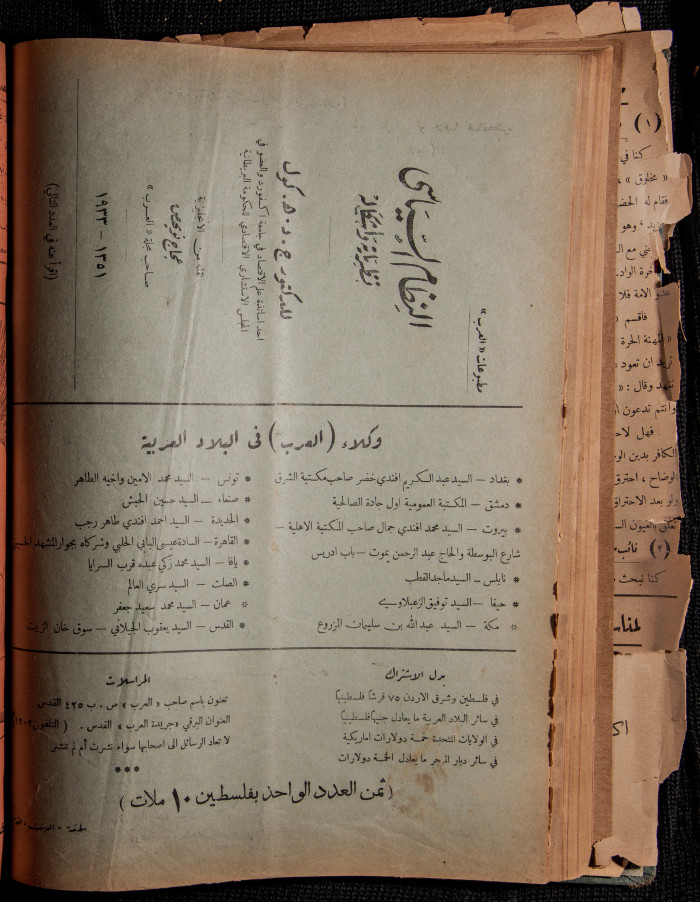 مطبوعات «العرب»
النظام السياسي
نظرياته وأشكاله
للدكتور ج. د. ه. كول
احد اساتذة علم الاقتصاد في جامعة اكسفورد والعضو في
المجلس الاستشاري الاقتصادي للحكومة البريطانية
نقله من الانجليزية
عجاج نويهض
صاحب مجلة «العرب»
١٣٥١ – ١٩٣٣
(اقرأ عنه في العدد التالي)
وكلاء (العرب) في البلاد العربية
* بغداد – السيد عبد الكريم افندي خضر صاحب مكتبة الشرق
* دمشق – المكتبة العمومية اول جادة الصالحية
* بيروت – السيد محمد افندي جمال صاحب المكتبة الاهلية –
شارع البوسطة والحاج عبد الرحمن يموت – باب ادريس
* نابلس – السيد ماجد القطب
* حيفا – السيد توفيق الزعبلاوي
* مكة – السيد عبد الله بن سليمان المزروع
* تونس – السيد محمد الامين واخيه الطاهر
* صنعاء – السيد حسين الحبش
* الحديدة – السيد احمد افندي طاهر رجب
* القاهرة – السادة عيسى البابي الحلبي وشركاه بجوار المشهد
* يافا – السيد محمد زكي عبده قرب السرايا
* الصلت – السيد سري العالم
* عمان – السيد محمد سعيد جعفر
* القدس – السيد يعقوب الجيلاني – سوق خان الزيت
بدل الاشتراك
في فلسطين وشرق الاردن ٧٥ قرشاً فلسطينياً
في سائر البلاد العربية ما يعادل جنيهاً فلسطينياً
في الولايات المتحدة خمسة دولارات اماريكية
في سائر ديار المهجر ما يعادل الخمسة دولارات
المراسلات
تعنون باسم صاحب «العرب» ص. ب ٤٢٥ القدس
العنوان البرقي «جريدة العرب» القدس. (التلفون
لا تعاد الرسائل الى اصحابها سواء نشرت أم لم تنشر
***
(ثمن العدد الواحد بفلسطين ١٠ ملات)
مطبعة - العرب
(١)
كنا في
«مخلوق»
فقام له
وهو
فلا
فاقسم
الحرة
ان تعود
وقال: «
وانتم تدعون
فهل
الكافر بدين
الوضاح، احترق
ولو بعد
(٢)
كنا نبحث